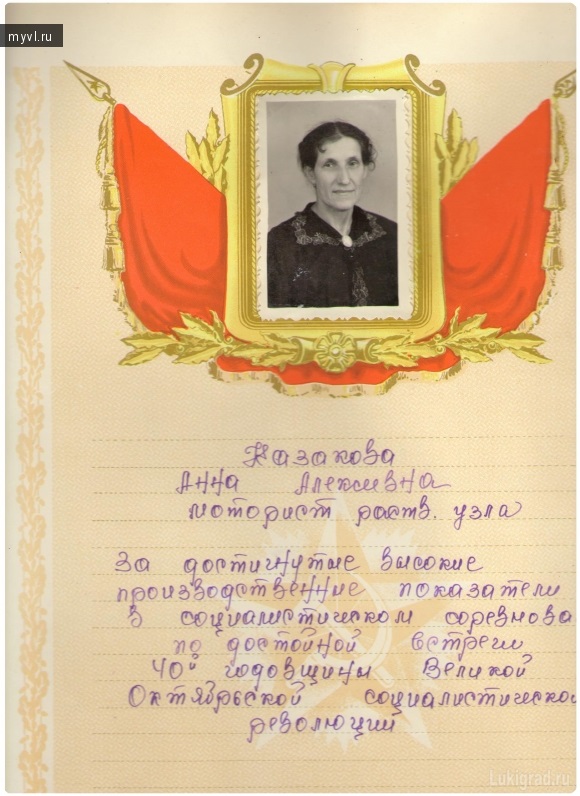 myvl.ru
Казакова
Анна Алексивна
моторист раств. узла
За достигнутые высокие
производственные показатели
в социалистическом соревнова
по достойной встречи
40й годовщины Великой
Октябрьской социалистической
революции
Lukigrad.ru